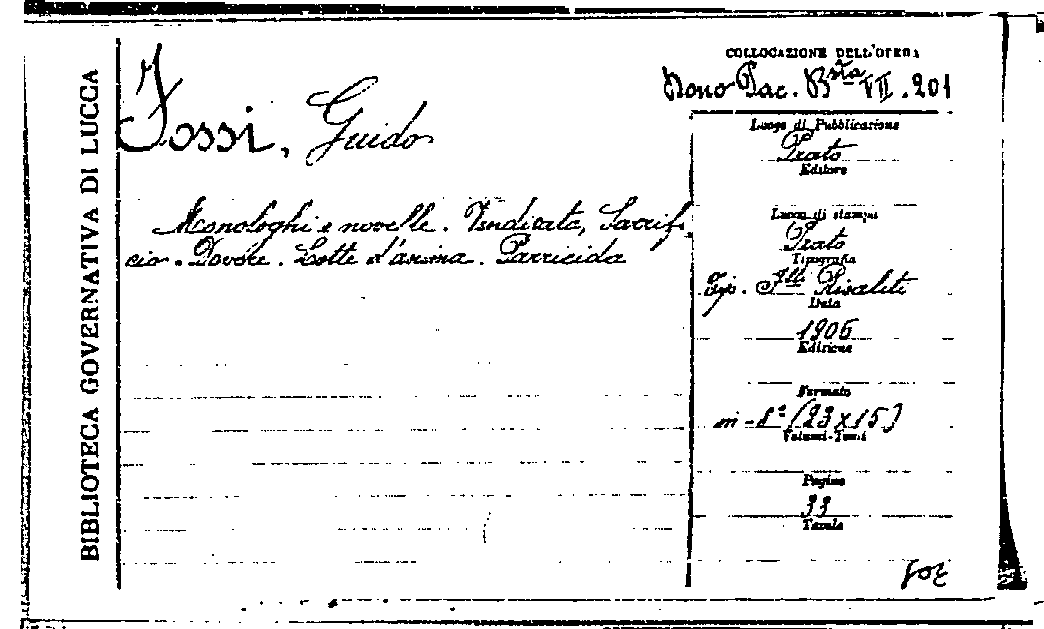 BIBLIOTECA GOVERNATIVA DI LUCCA
Tossi, Guido
Monologhi e novelle. Vendicata, Sacrifi-
cio. Dovere. Lotte d'anima. Parricida
COLLOCAZIONE DELL'OPERA
Dono Pac. Bsta VII. 201
Luogo di Pubblicazione
Prato
Editore
Luogo di stampa
Prato
Tipografia
Tip. Flli Risaliti
Data
1906
Edizione
Formato
in-8° (23x15)
Volumi-Tomi
Pagine
33
Tavole